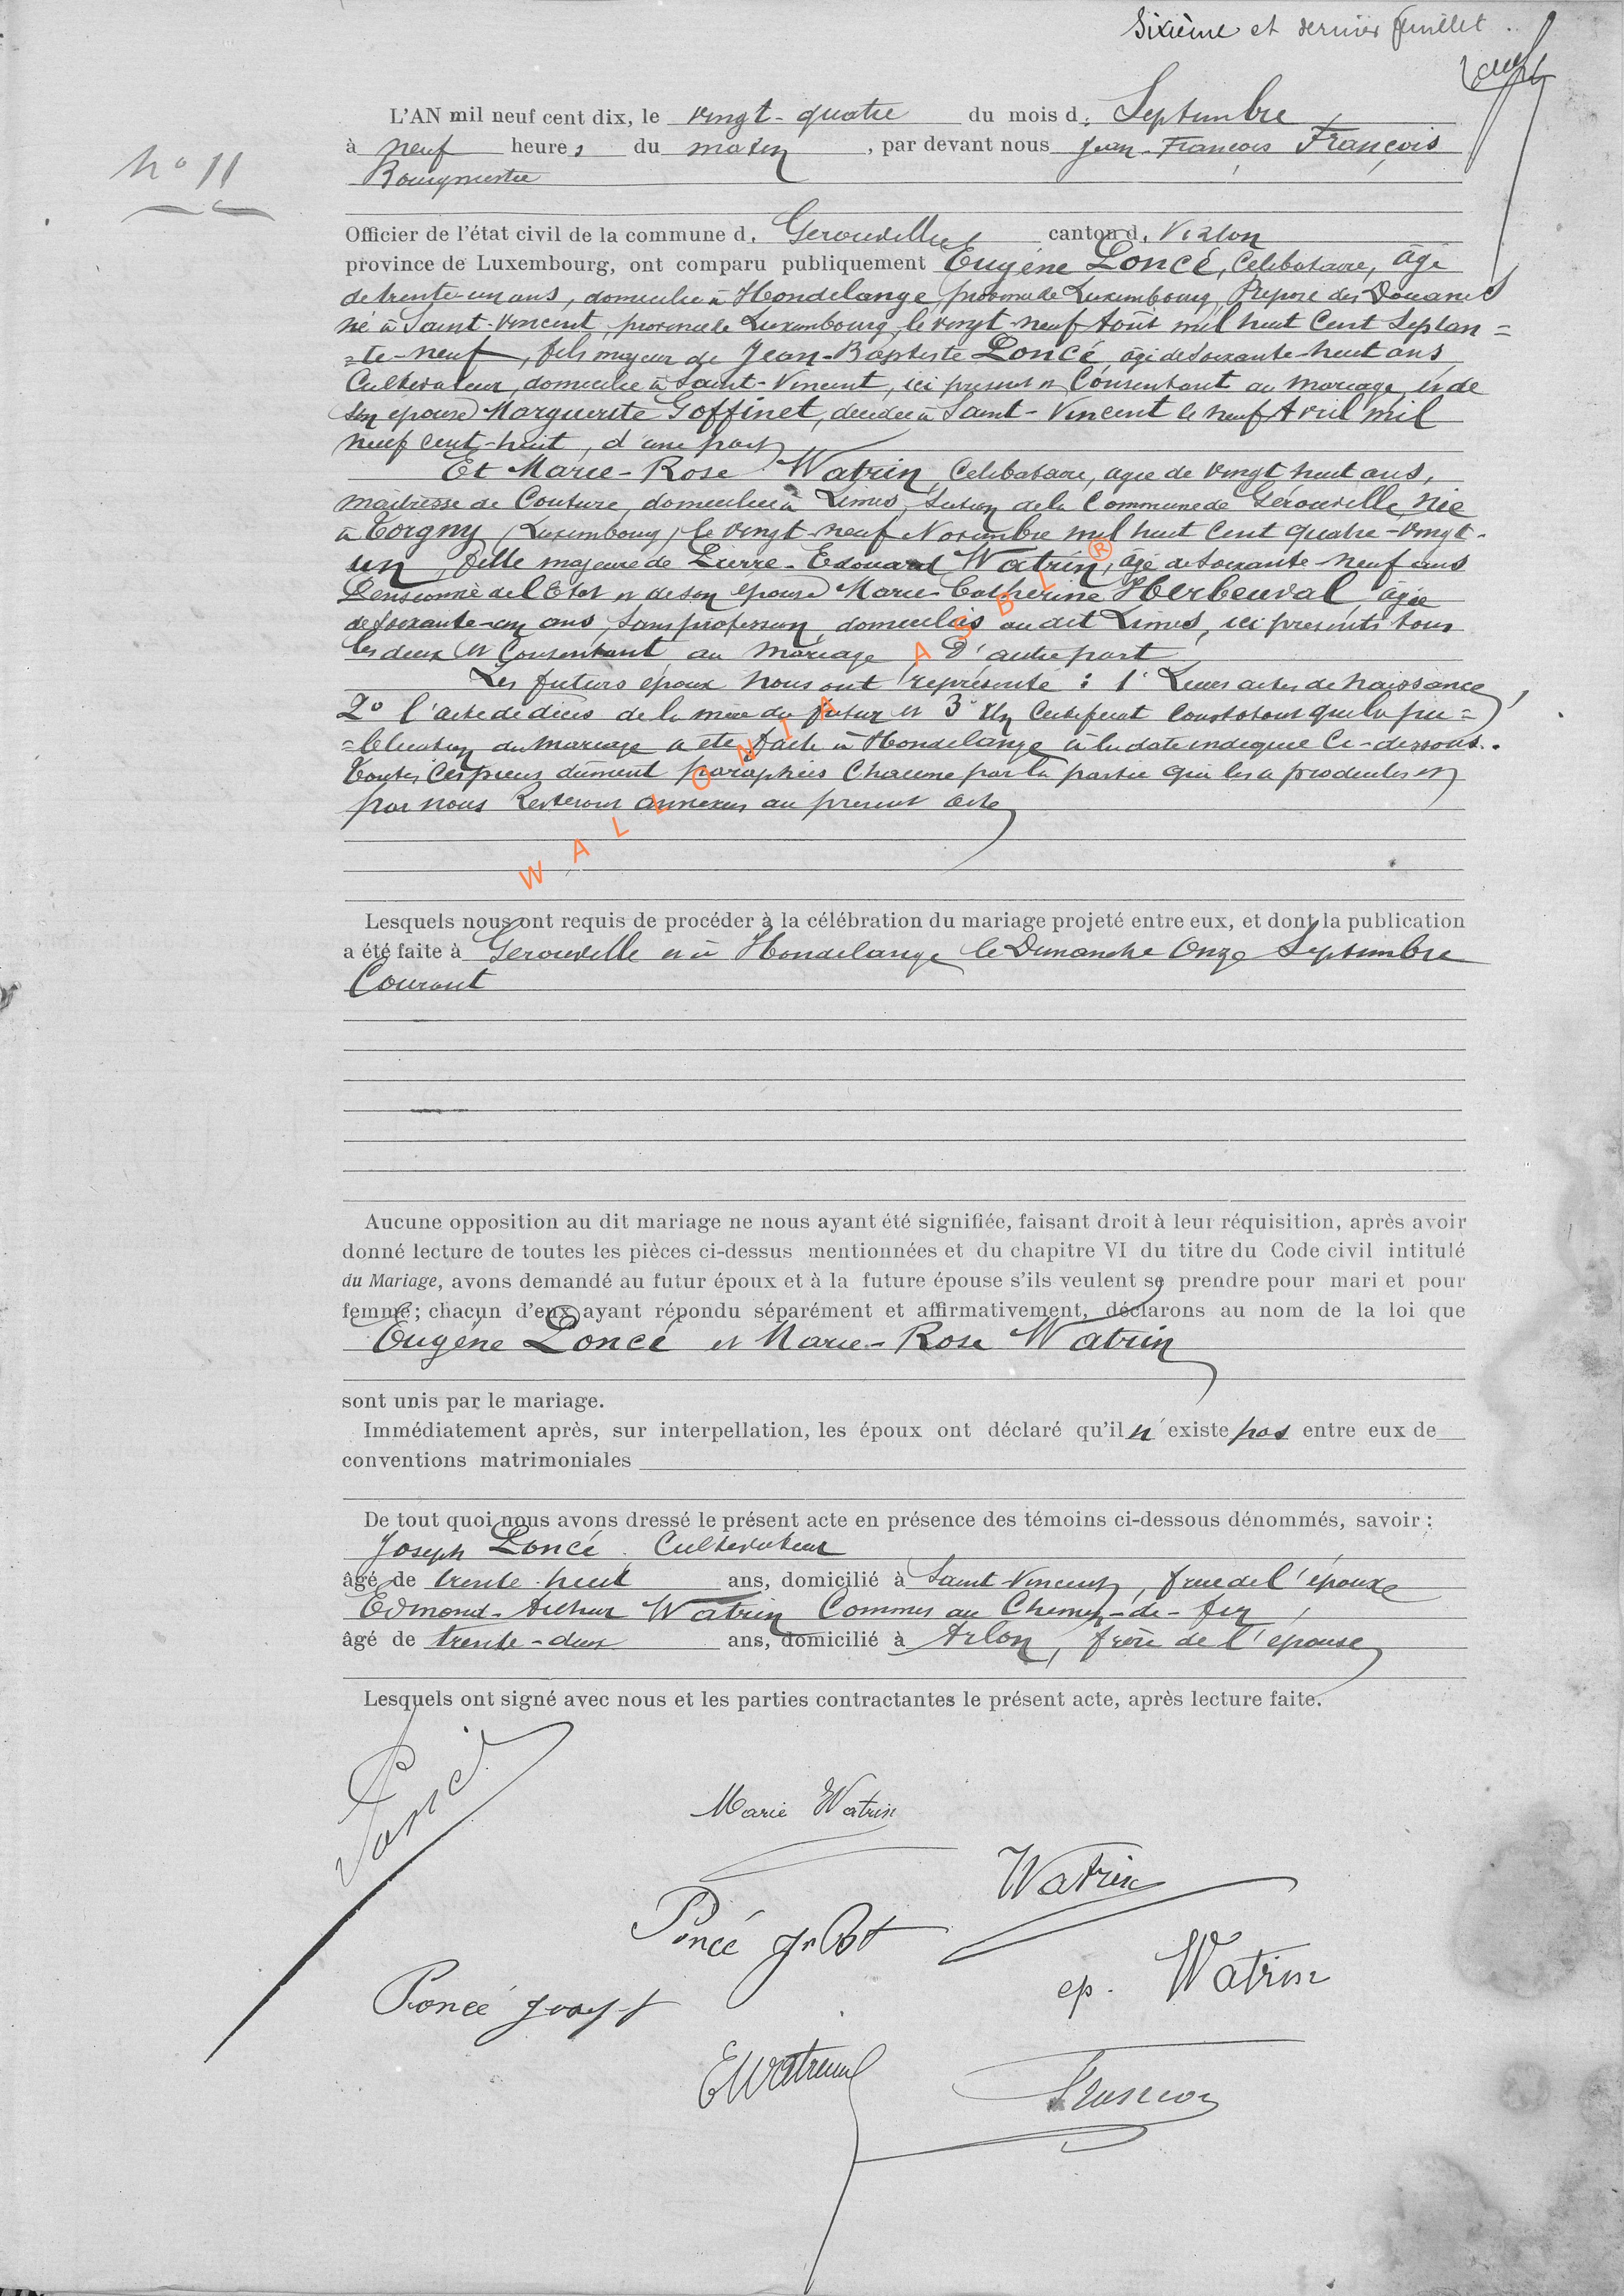 Sixième et dernier feuillet
L'AN mil neuf cent dix, le vingt-quatre du mois d. Septembre
N° 11
à neuf heures du matin, par devant nous Jean-François François
Bourgmestre
Officier de l'état civil de la commune d. Gérouville canton d. Virton
province de Luxembourg, ont comparu publiquement Eugène Poncé, Célibataire, âgé
de trente-un ans, domicilié à Hondelange province de Luxembourg, Préposé des Douanes
né à Saint-Vincent, province de Luxembourg, le vingt-neuf Août mil huit Cent Septan=
=te-neuf, fils majeur de Jean-Baptiste Poncé, âgé de soixante-huit ans
Cultivateur, domicilié à Saint-Vincent, ici présent et Consentant au mariage, et de
son épouse Marguerite Goffinet, décédée à Saint-Vincent le neuf Avril mil
neuf cent-huit, d'une part
Et Marie-Rose Watrin, Célibataire, agée de vingt huit ans,
maîtresse de Couture, domiciliée à Limes, Section de la Commune de Gérouville, née
à Torgny (Luxembourg) le vingt-neuf Novembre mil huit Cent quatre-vingt-
un, fille majeure de Pierre-Edouard Watrin, âgé de soixante-neuf ans
Pensionné de l'Etat et de son épouse Marie-Catherine Herbeuval âgée
de soixante-un ans, sans profession, domiciliés au dit Limes, ici présents tous
les deux et Consentant au mariage, D'autre part
Les futurs époux nous ont représenté : 1° Leurs actes de naissance,
2° l'acte de décès de la mère du futur et 3° Un Certificat Constatant que la pu=
=blication du mariage a été faite à Hondelange à la date indiquée Ci-dessous.
Toutes Ces pièces dûment paraphées Chacune par la partie qui les a produites et
par nous Resteront annexées au présent acte
WALLONIA ASBL ®
Lesquels nous ont requis de procéder à la célébration du mariage projeté entre eux, et dont la publication
a été faite à Gérouville et à Hondelange le Dimanche Onze Septembre
Courant
Aucune opposition au dit mariage ne nous ayant été signifiée, faisant droit à leur réquisition, après avoir
donné lecture de toutes les pièces ci-dessus mentionnées et du chapitre VI du titre du Code civil intitulé
du Mariage, avons demandé au futur époux et à la future épouse s'ils veulent se prendre pour mari et pour
femme; chacun d'eux ayant répondu séparément et affirmativement, déclarons au nom de la loi que
Eugène Poncé et Marie-Rose Watrin
sont unis par le mariage.
Immédiatement après, sur interpellation, les époux ont déclaré qu'il n'existe pas entre eux de
conventions matrimoniales
De tout quoi nous avons dressé le présent acte en présence des témoins ci-dessous dénommés, savoir :
Joseph Poncé. Cultivateur
âgé de trente-huit ans, domicilié à Saint Vincent, frère de l'époux
Edmond-Arthur Watrin Commis au Chemin-de-fer,
âgé de trente-deux ans, domicilié à Arlon, frère de l'épouse
Lesquels ont signé avec nous et les parties contractantes le présent acte, après lecture faite.
Poncé
Marie Watrin
Watrin
Poncé J. Bt
ep. Watrin
Poncé Joseph
EWatrin
François